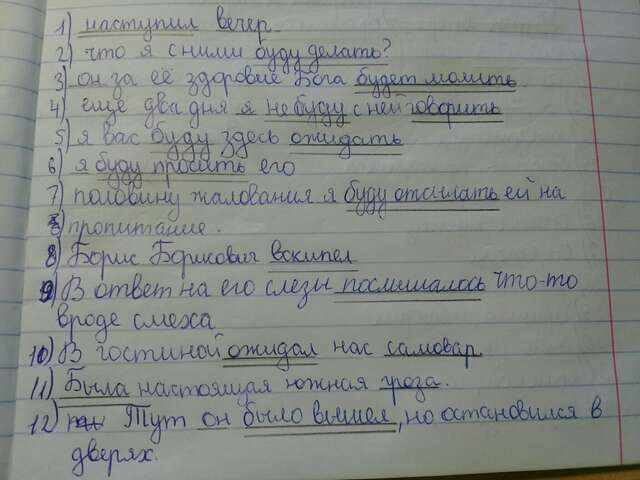 1) наступил вечер.
2) что я с ними буду делать?
3) он за её здоровие Бога будет молить.
4) ещё два дня я не буду с ней говорить
5) я вас буду здесь ожидать
6) я буду просить его
7) половину жалования я буду отсылать ей на
пропитание.
8) Борис Борисович вскипел
9) В ответ на его слезы послышалось что-то
вроде смеха
10) В гостиной ожидал нас самовар
11) Была настоящая южная гроза.
12) Тут он было вышел, но остановился в
дверях.